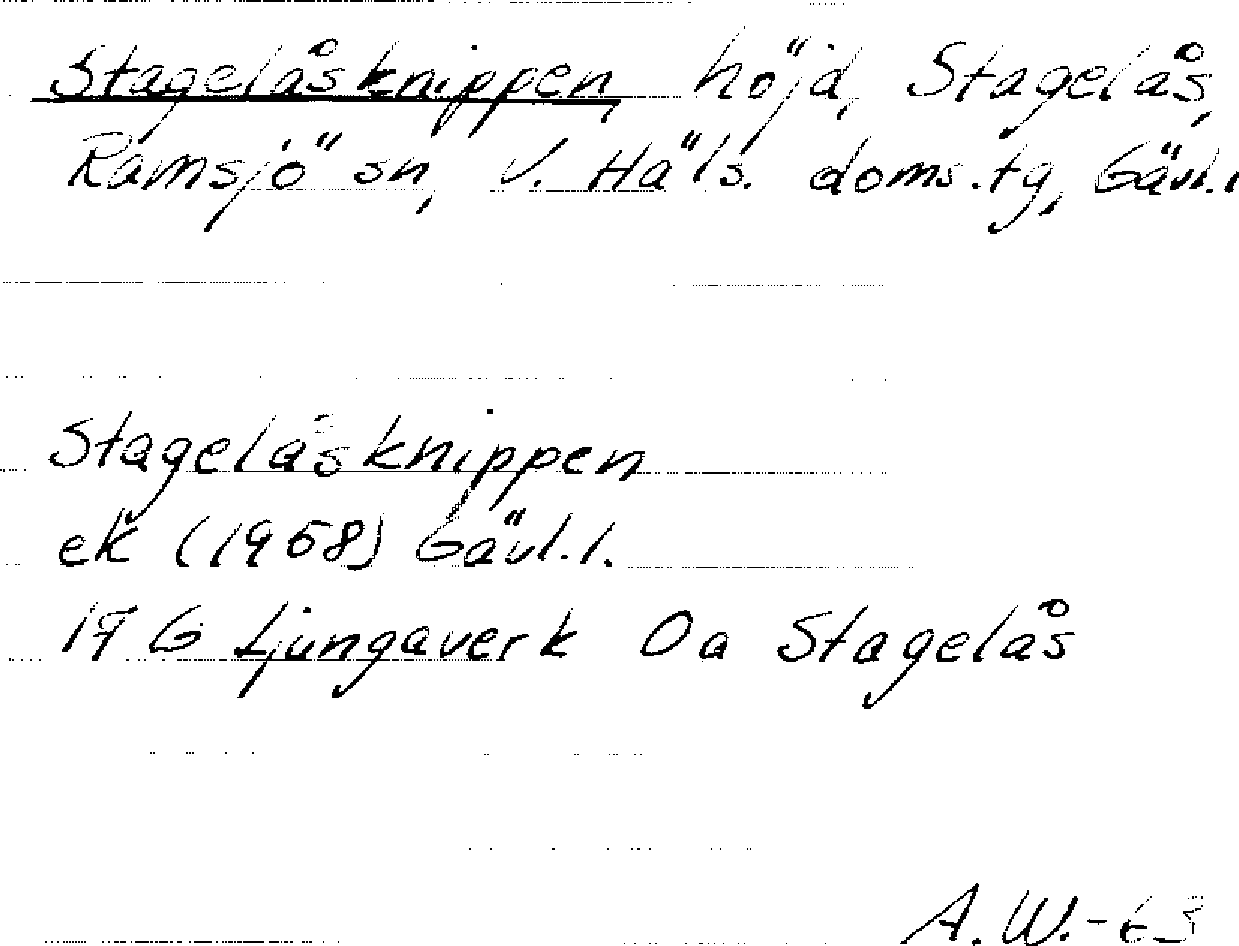 Stagelåsknippen, höjd, Stagelås,
Ramsjö sn, V. Häls. doms.tg, Gävl.l
Stagelåsknippen
ek (1958) Gävl.l.
17 G Ljungaverk Oa Stagelås
A.W.-63